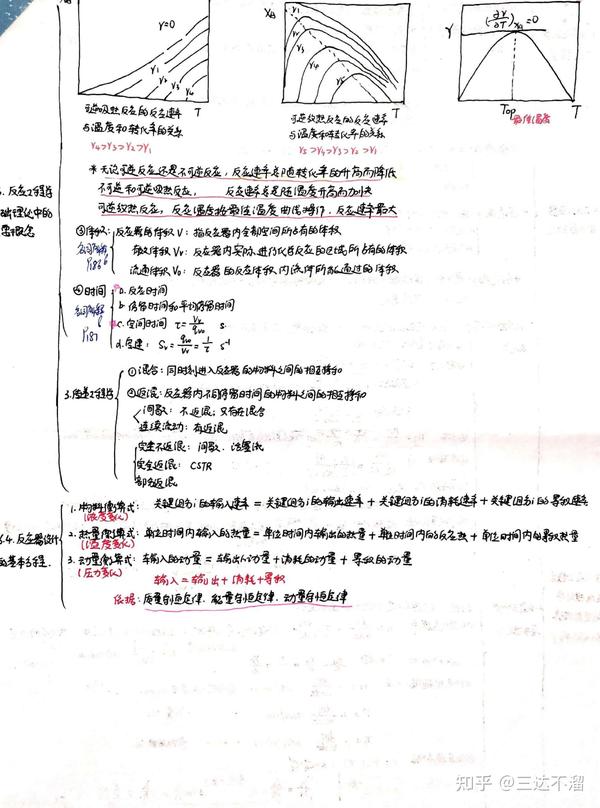 r=0
r₁
r₂
r₃
r₄
T
可逆吸热反应的反应速率
与温度和转化率的关系
r₄>r₃>r₂>r₁
XA
r₁
T
可逆放热反应的反应速率
与温度和转化率的关系
r₅>r₄>r₃>r₂>r₁
r
(∂r/∂T)xA=0
Top
T
最佳温度
*无论可逆反应还是不可逆反应,反应速率总随转化率的升高而降低
不可逆和可逆吸热反应,反应速率总是随温度升高而加快
可逆放热反应,反应温度按最佳温度曲线操作,反应速率最大
反应工程学
础理论中的
③体积:反应器的体积V:指反应器内全部空间所占有的体积
名词解释
有效体积VR:反应器内实际进行化学反应的区域所占有的体积
流通体积V₀:反应器的反应体积内流体所能通过的体积
④时间
名词解释
P187
a.反应时间
b.停留时间和平均停留时间
c.空间时间 τ=VR/qv₀ s
d.空速:Sv=qv₀/VR=1/τ s⁻¹
3.传递工程学
①混合:同时刻进入反应器的物料之间的相互掺和
②返混:反应器内不同停留时间的物料之间的相互掺和
间歇:不返混,只存在混合
连续流动:有返混
完全不返混:间歇、活塞流
完全返混:CSTR
部分返混
4.反应器设计
的基本方程.
1.物料衡算式:关键组分i的输入速率=关键组分i的输出速率+关键组分i的消耗速率+关键组分i的累积速率
(浓度变化)
2.热量衡算式:单位时间内输入的热量=单位时间内输出的热量+单位时间内的反应热+单位时间内的累积热量
(温度变化)
3.动量衡算式:输入的动量=输出的动量+消耗的动量+累积的动量
(压力变化)
输入=输出+消耗+累积
依据:质量守恒定律、能量守恒定律、动量守恒定律
知乎 @三达不溜